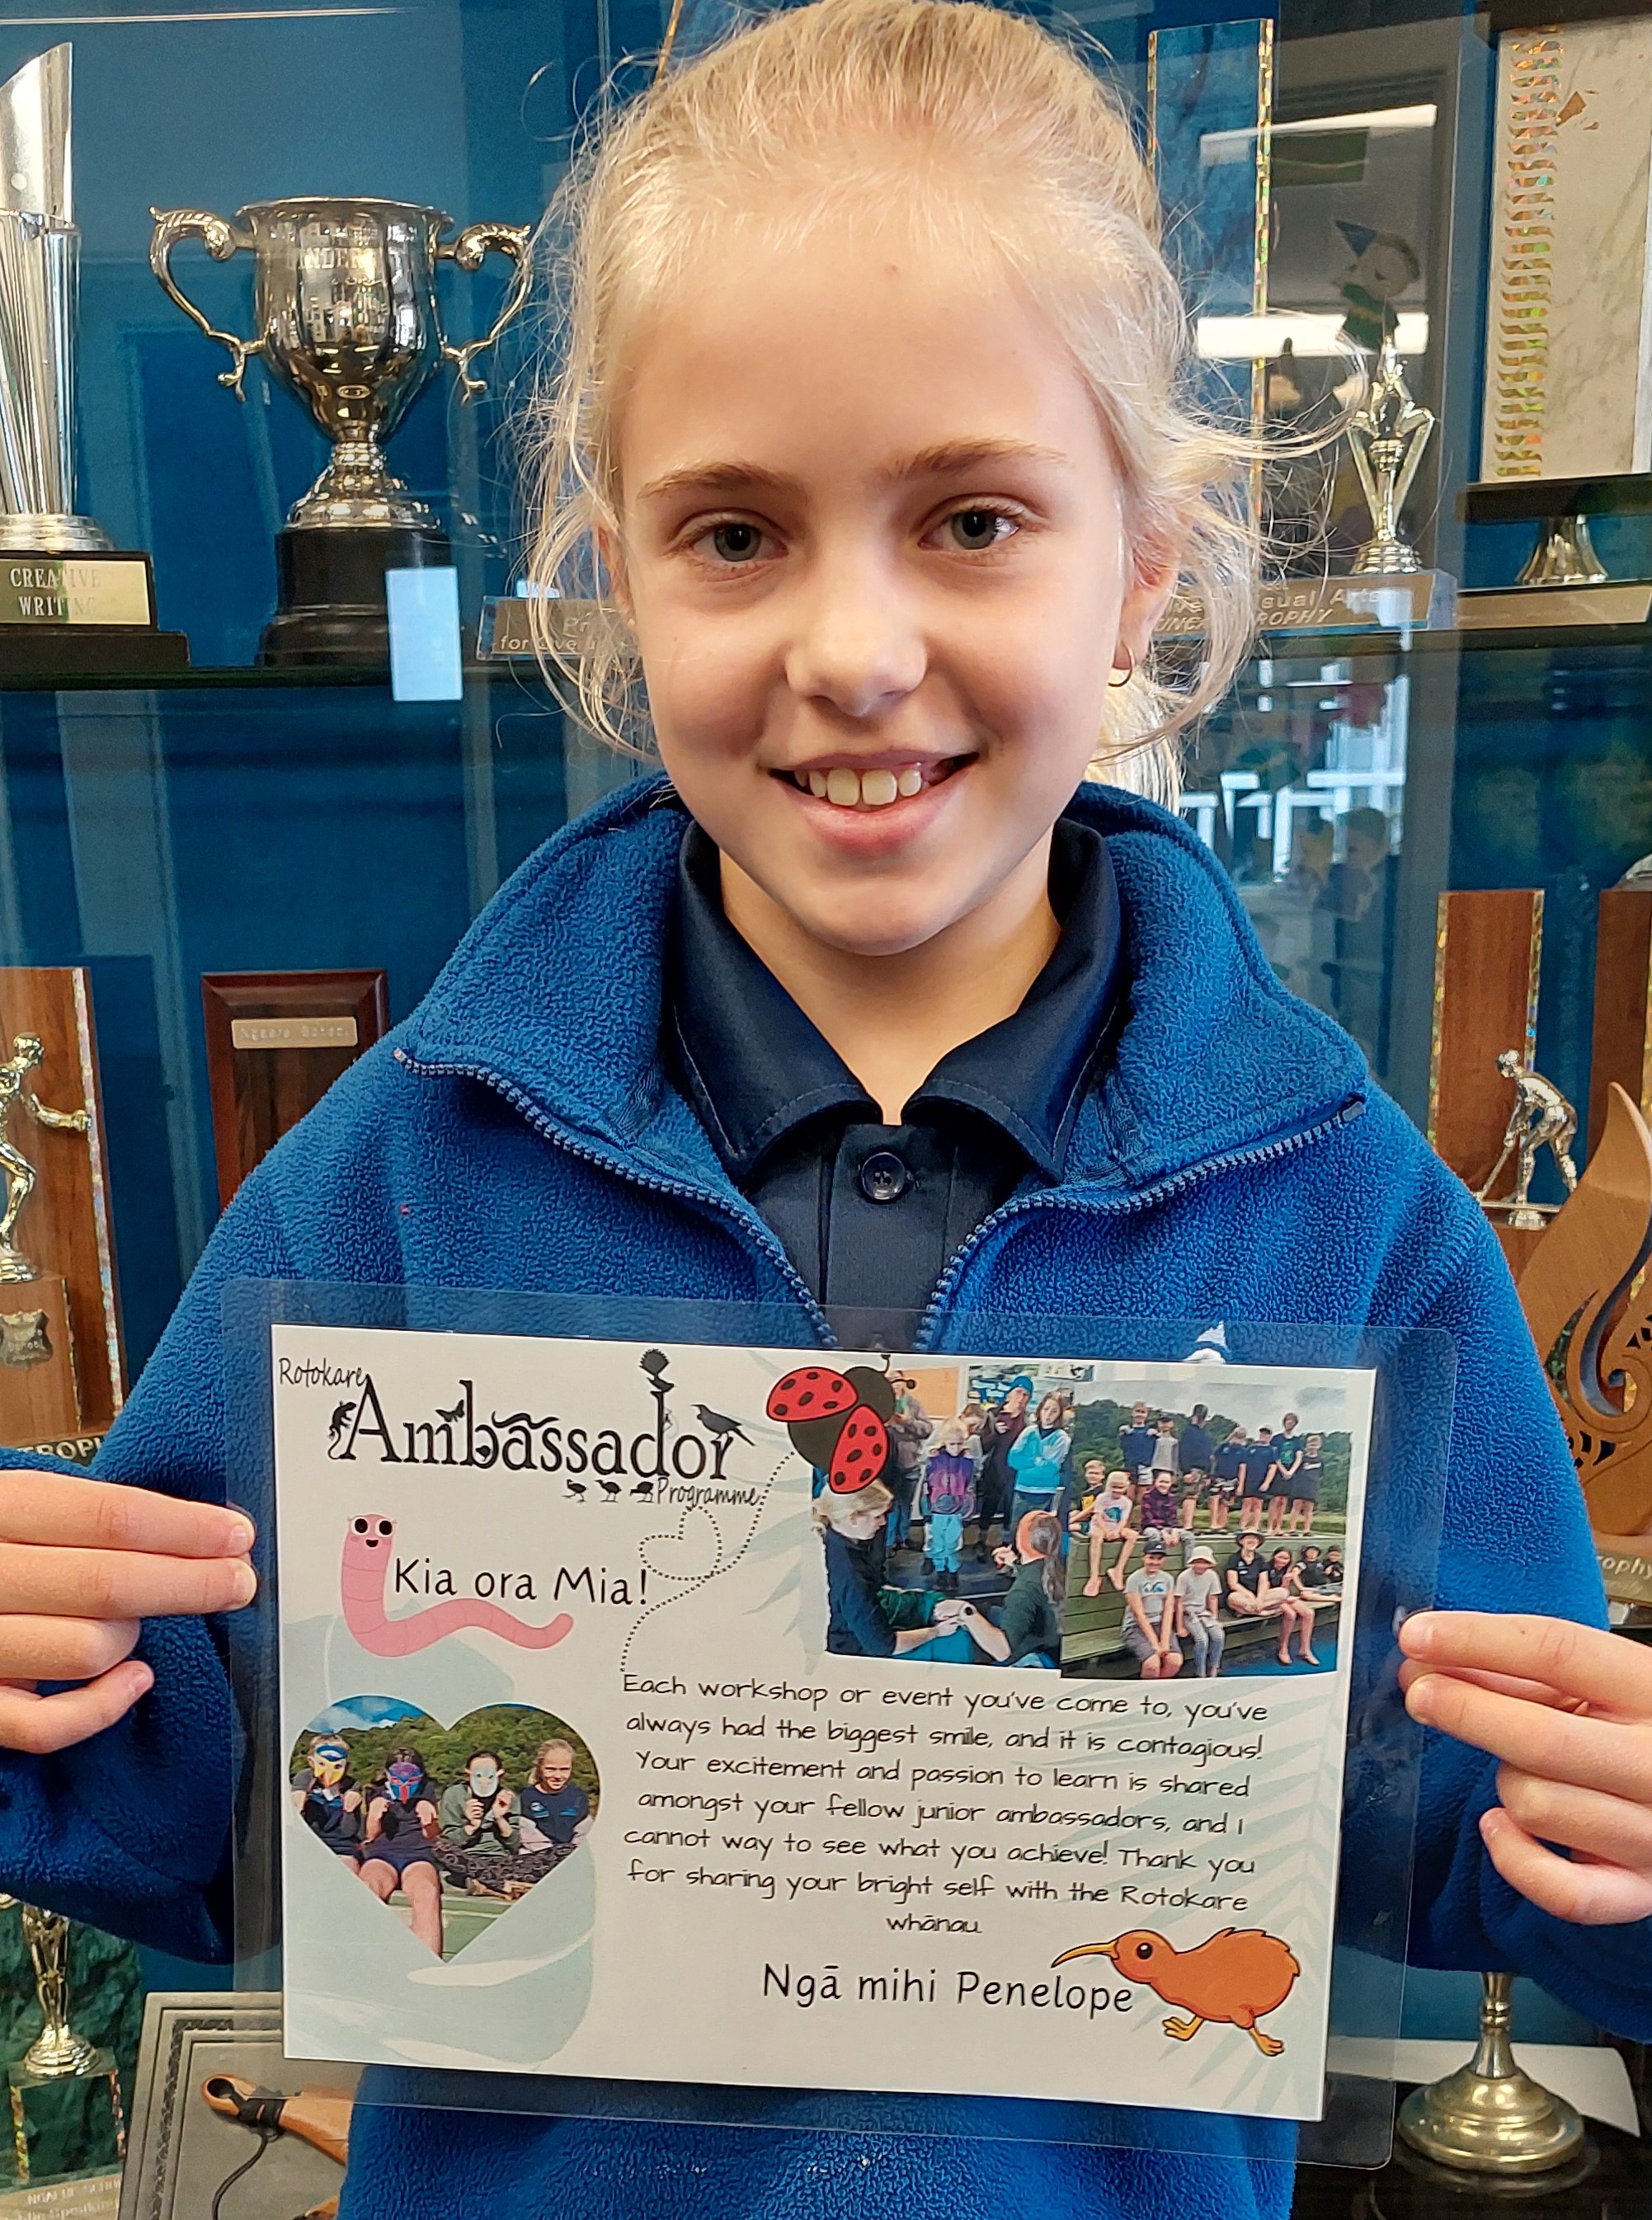 CREATIVE
WRITING
Visual Arts
TROPHY
School
TROP
rophy
Rotokare
Ambassador
Programme
Kia ora Mia!
Each workshop or event you've come to, you've
always had the biggest smile, and it is contagious!
Your excitement and passion to learn is shared
amongst your fellow junior ambassadors, and I
cannot way to see what you achieve! Thank you
for sharing your bright self with the Rotokare
whānau.
Ngā mihi Penelope